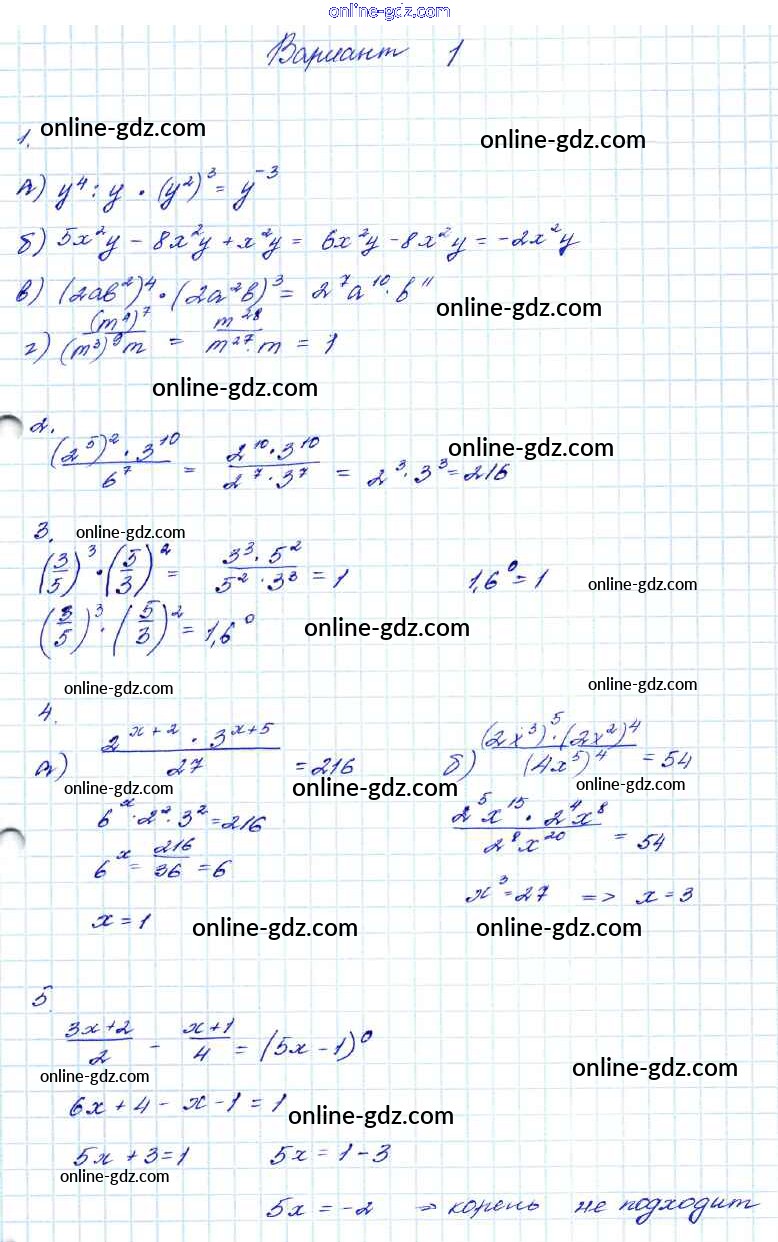 online-gdz.com
Вариант 1
1. online-gdz.com online-gdz.com
а) y⁴ : y · (y²)³ = y⁻³
б) 5x²y − 8x²y + x²y = 6x²y − 8x²y = −2x²y
в) (2ab²)⁴ · (2a²b)³ = 2⁷a¹⁰ · b¹¹
online-gdz.com
г) (m⁴)⁷/(m³)⁹m = m²⁸/m²⁷·m = 1
online-gdz.com
2.
(2⁵)² · 3¹⁰/6⁷ = 2¹⁰ · 3¹⁰/2⁷ · 3⁷ = 2³ · 3³ = 216
online-gdz.com
3. online-gdz.com
(3/5)³ · (5/3)² = 3³ · 5²/5² · 3³ = 1 1,6⁰ = 1 online-gdz.com
(3/5)³ · (5/3)² = 1,6⁰ online-gdz.com
online-gdz.com online-gdz.com
4.
а) 2ˣ⁺² · 3ˣ⁺⁵/27 = 216 б) (2x³)⁵ · (2x²)⁴/(4x⁵)⁴ = 54
online-gdz.com online-gdz.com online-gdz.com
6ˣ · 2² · 3² = 216 2⁵x¹⁵ · 2⁴x⁸/2⁸x²⁰ = 54
6ˣ = 216/36 = 6 x³ = 27 => x = 3
x = 1 online-gdz.com online-gdz.com
5
3x+2/2 − x+1/4 = (5x − 1)⁰
online-gdz.com online-gdz.com
6x + 4 − x − 1 = 1 online-gdz.com
5x + 3 = 1 5x = 1 − 3
online-gdz.com
5x = −2 → корень не подходит